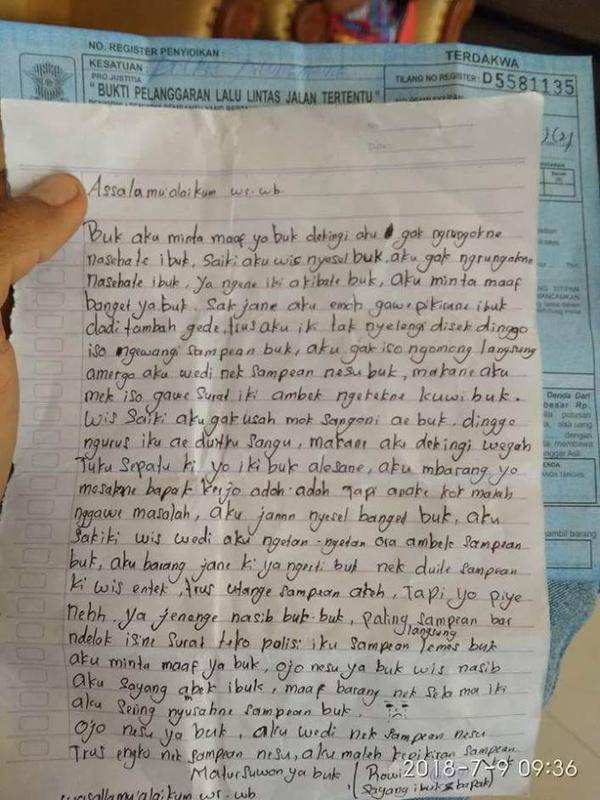 NO. REGISTER PENYIDIKAN :
TERDAKWA
KESATUAN
PRO JUSTITIA
TILANG NO REGISTER : D5581135
" BUKTI PELANGGARAN LALU LINTAS JALAN TERTENTU "
No.
Date :
Assalamu'alaikum wr.wb.
Buk aku minta maaf ya buk dekingi aku gak ngrungokne
nasehate ibuk, Saiki aku wis nyesel buk, aku gak ngrungokne
nasehate ibuk, ya ngene iki akibate buk, aku minta maaf
banget ya buk. Sak jane aku emoh gawe pikirane ibuk
dadi tambah gede, trus aku ik tak nyelengi disek dinggo
iso ngewangi sampean buk, aku gak iso ngomong langsung
amergo aku wedi nek sampean nesu buk, makane aku
mek iso gawe surat iki ambek ngetekne kuwi buk.
Wis saiki aku gak usah mok sangoni ae buk, dinggo
ngurus iku ae duitku sangu, makane aku dekingi wegah
tuku sepatu ki yo iki buk alesane, aku mbarang yo
mesakne bapak kerjo adoh-adoh tapi anake kok malah
nggawe masalah, aku jannn nyesel banged buk, aku
sakiki wis wedi aku ngetan-ngetan ora ambek sampean
buk, aku barang jane ki ya ngerti buk nek duile sampean
ki wis entek, trus utange sampean akeh, Tapi yo piye
nehh. ya jenenge nasib buk-buk, paling sampean bar
ndelok isine surat teko polisi iku sampean langsung lemes buk
aku minta maaf ya buk, ojo nesu ya buk wis nasib
aku sayang abek ibuk, maaf barang nek selama iki
aku sering nyusahne sampean buk.
Ojo nesu ya buk, aku wedi nek sampean nesu
Trus engko nek sampean nesu, aku maleh kepikiran sampean.
Matursuwon ya buk
Sayang ibuk & bapak)
2018-7-9 09:36
wassallamu'alaikum wr. wb.
Denda Dari
besar Rp.
putusan
sisa uang
dengan
membawa
nggar Asli.
ambil barang